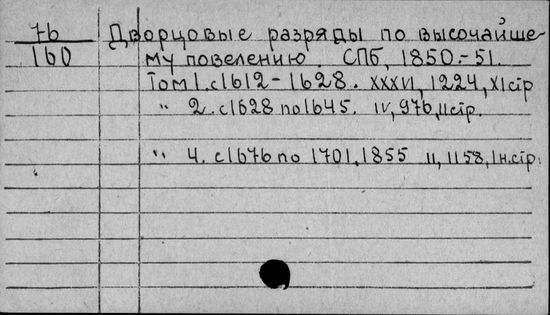 76 Дворцовые разряды по высочайше-
160 му повелению. СПб, 1850.-51.
Том 1. с 1612-1628. XXXVI, 1224, XI стр
" 2. с 1628 по 1645. IV, 976, II стр.
" 4. с 1676 по 1701, 1855 II, 1158, 1 н. стр.